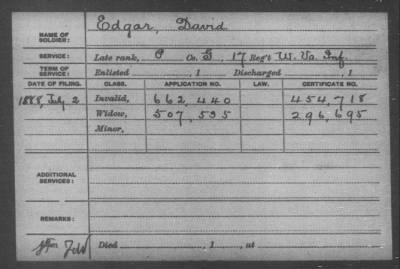 NAME OF SOLDIER: Edgar, David
SERVICE: Late rank, P Co. G, 17 Reg't W. Va. Inf.
TERM OF SERVICE: Enlisted , 1 Discharged , 1
DATE OF FILING. CLASS. APPLICATION NO. LAW. CERTIFICATE NO.
1888, July 2 Invalid, 662,440 454,718
Widow, 507,595 296,695
Minor,
ADDITIONAL SERVICES:
REMARKS:
Died , 1 , at